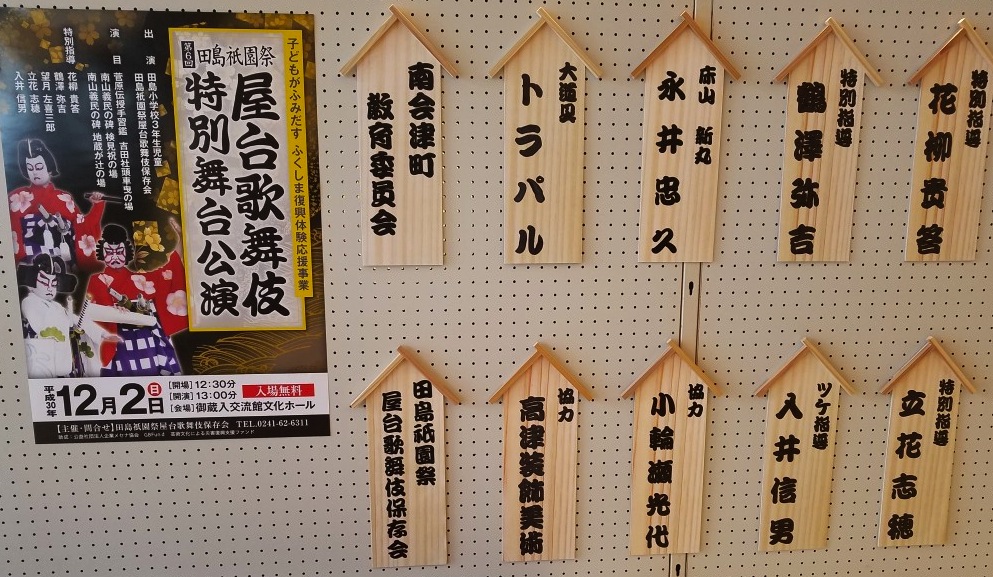 子どもがふみだす ふくしま復興体験応援事業
第6回 田島祇園祭
屋台歌舞伎
特別舞台公演
出演
田島小学校3年生児童
田島祇園祭屋台歌舞伎保存会
演目
菅原伝授手習鑑 吉田社頭車曳の場
南山義民の碑 検見祝の場
南山義民の碑 地蔵が辻の場
特別指導
花柳 貴答
鶴澤 弥吉
望月 左喜三郎
立花 志穂
入井 信男
平成30年 12月2日 日
[開場] 12:30分
[開演] 13:00分
入場無料
[会場] 御蔵入交流館文化ホール
【主催・問合せ】田島祇園祭屋台歌舞伎保存会 TEL.0241-62-6311
助成:公益社団法人企業メセナ協会 GBFund 芸術文化による災害復興支援ファンド
特別指導
花柳貴答
特別指導
鶴澤弥吉
床山 新丸
永井忠久
大道具
トラパル
南会津町
教育委員会
特別指導
立花志穂
ツケ指導
入井信男
協力
小輪瀬光代
協力
高津装飾美術
田島祇園祭
屋台歌舞伎保存会